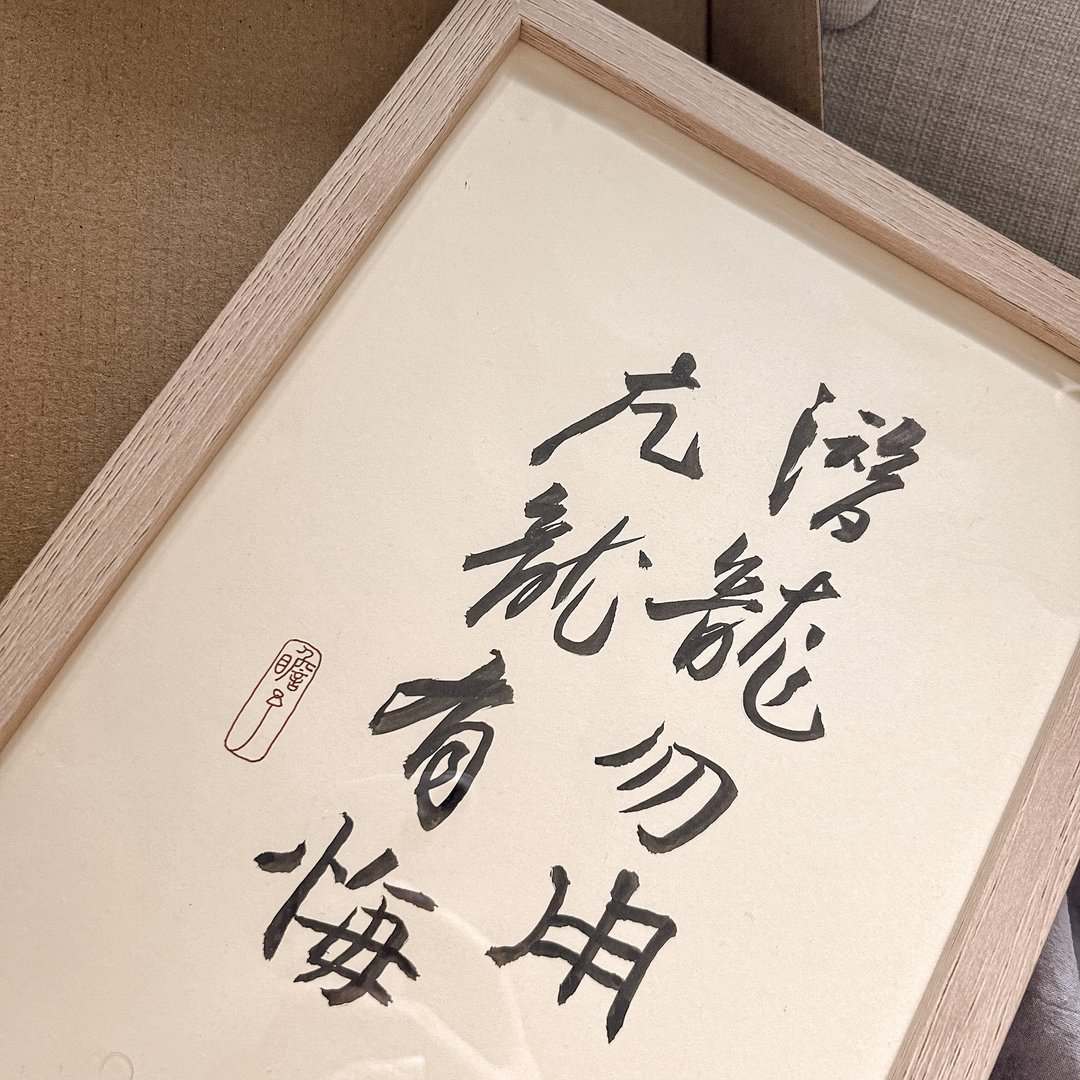 潛龍勿用
亢龍有悔